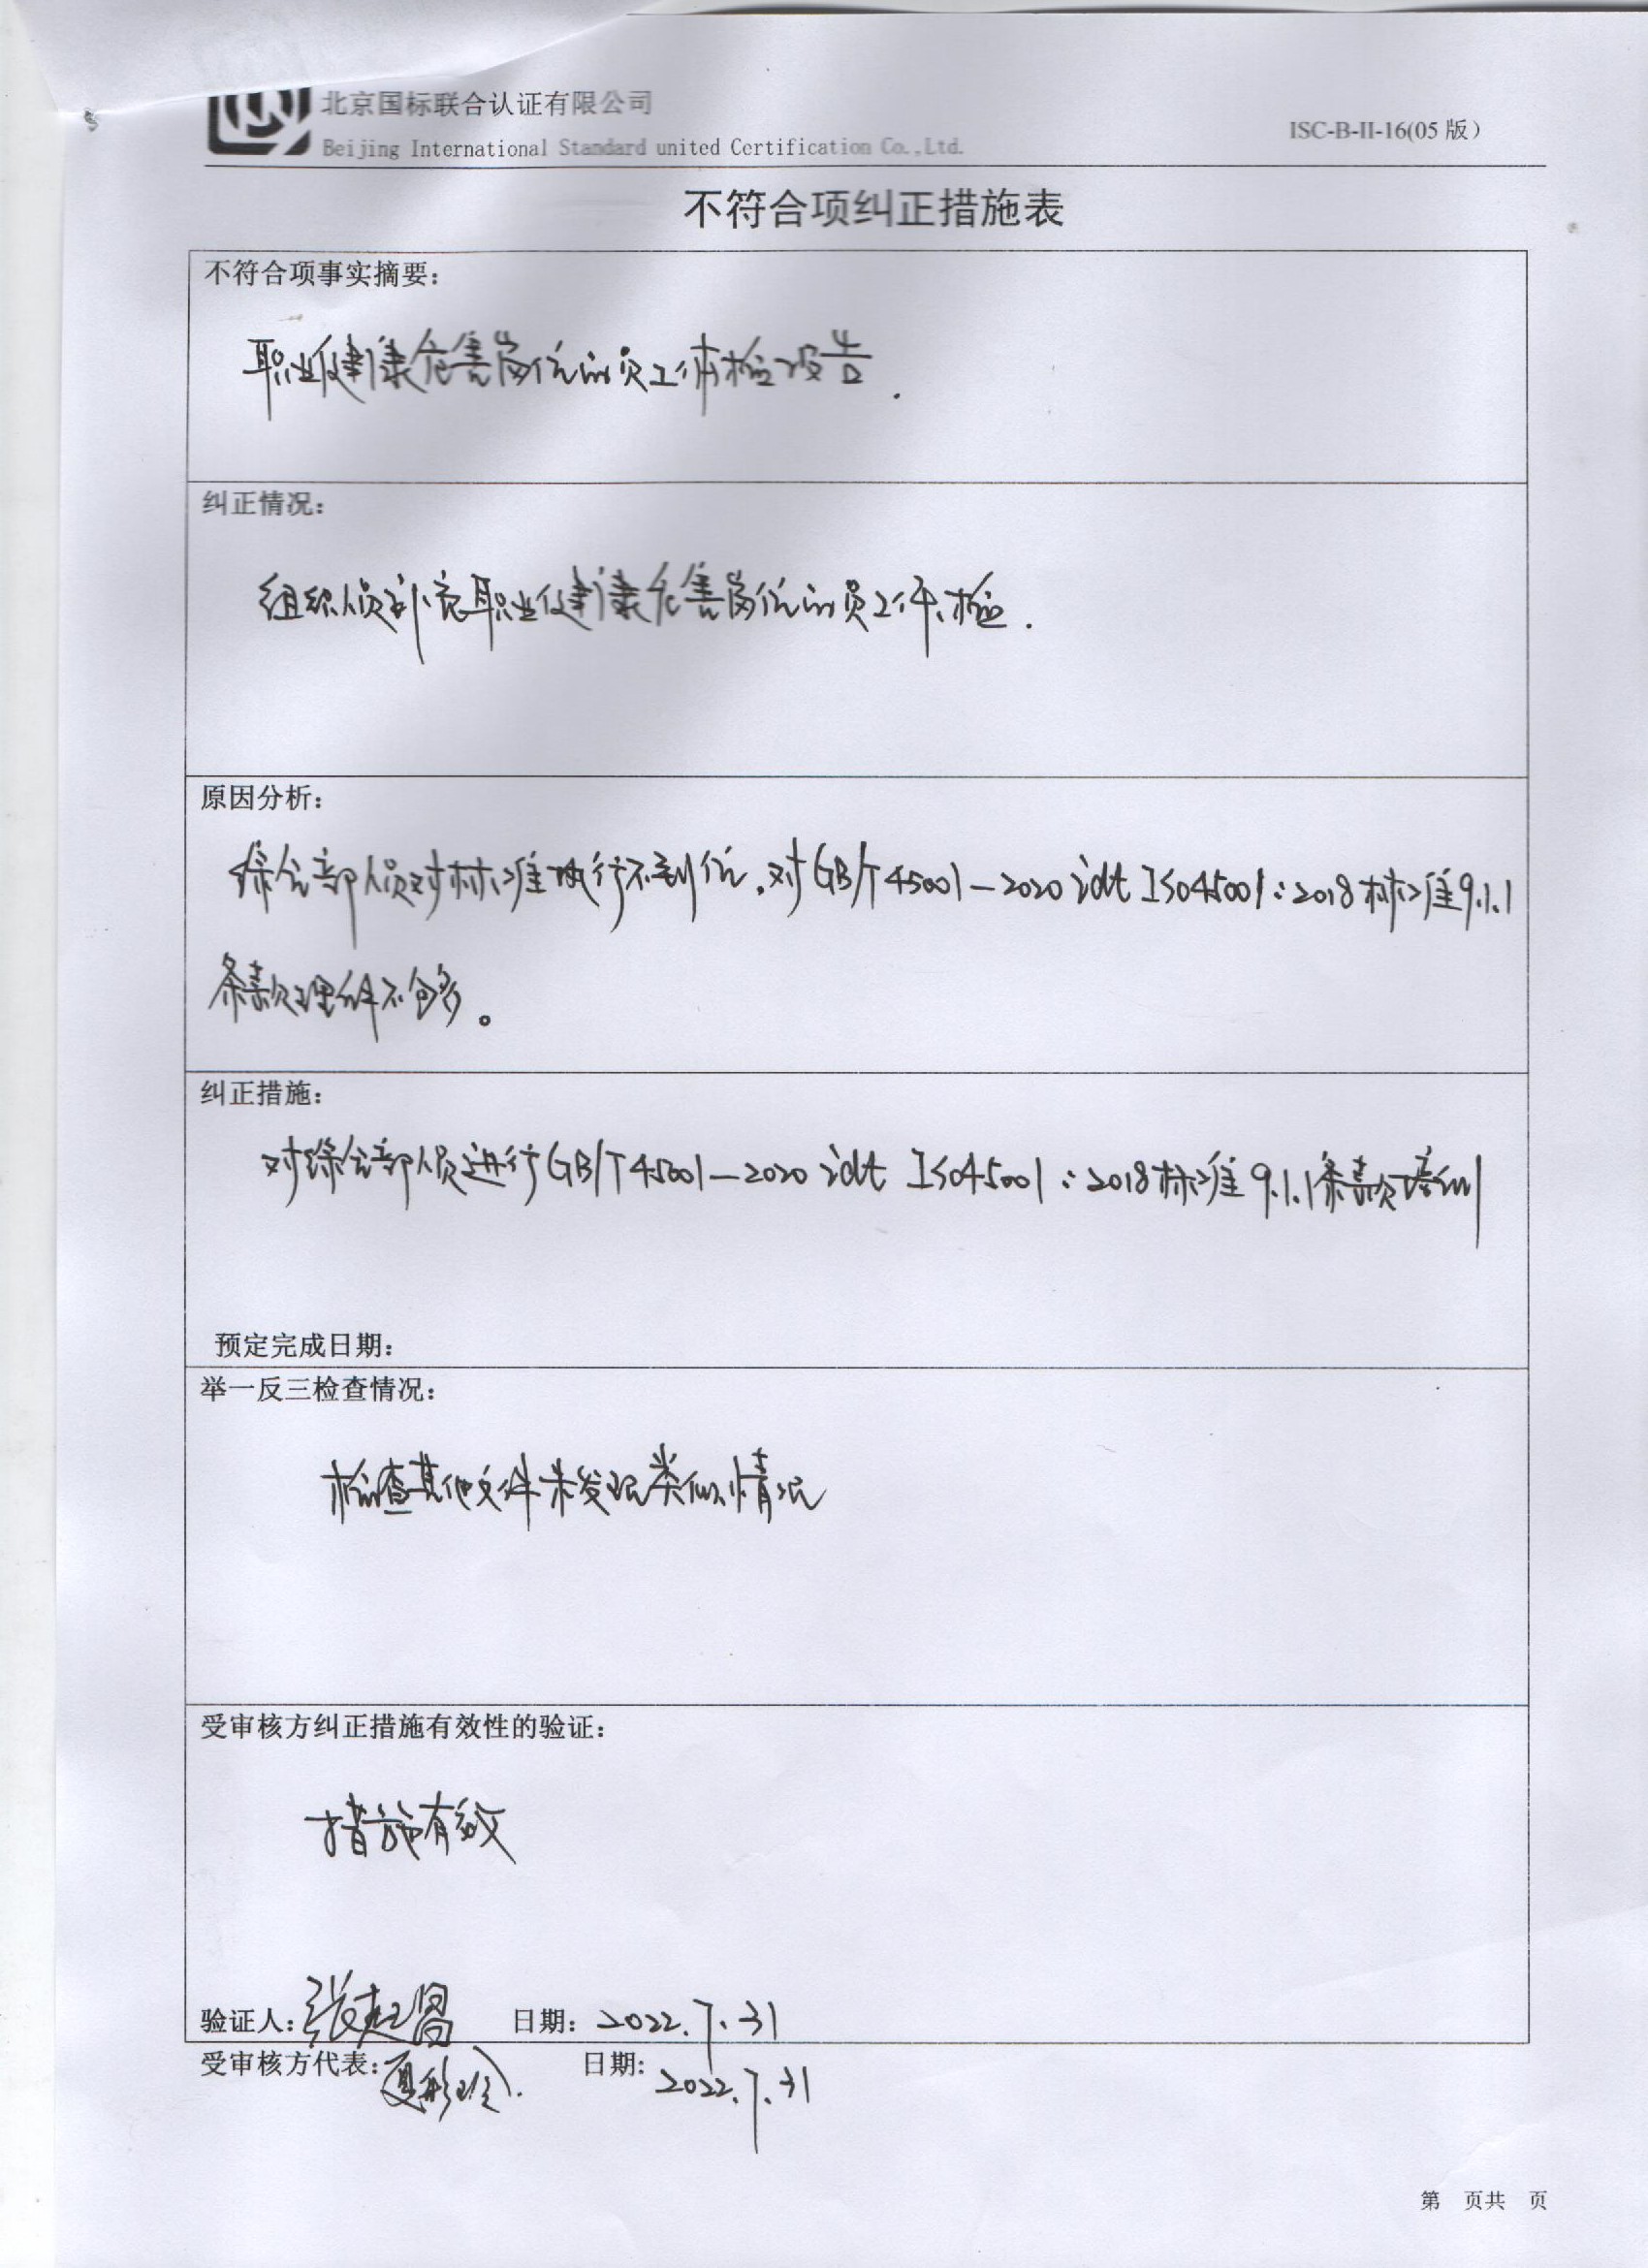 北京国标联合认证有限公司
Beijing International Standard united Certification Co.,Ltd.
ISC-B-II-16(05 版)
不符合项纠正措施表
不符合项事实摘要:
职业健康危害岗位的员工体检报告.
纠正情况:
组织人员补充职业健康危害岗位的员工体检.
原因分析:
综合部人员对标准执行不到位,对GB/T 45001-2020 idt ISO45001:2018标准9.1.1
条款理解不够。
纠正措施:
对综合部人员进行GB/T45001-2020 idt ISO45001:2018标准9.1.1条款培训
预定完成日期:
举一反三检查情况:
检查其他文件未发现类似情况
受审核方纠正措施有效性的验证:
措施有效
验证人: 日期: 2022.7.31
受审核方代表: 日期: 2022.7.31
第 页共 页